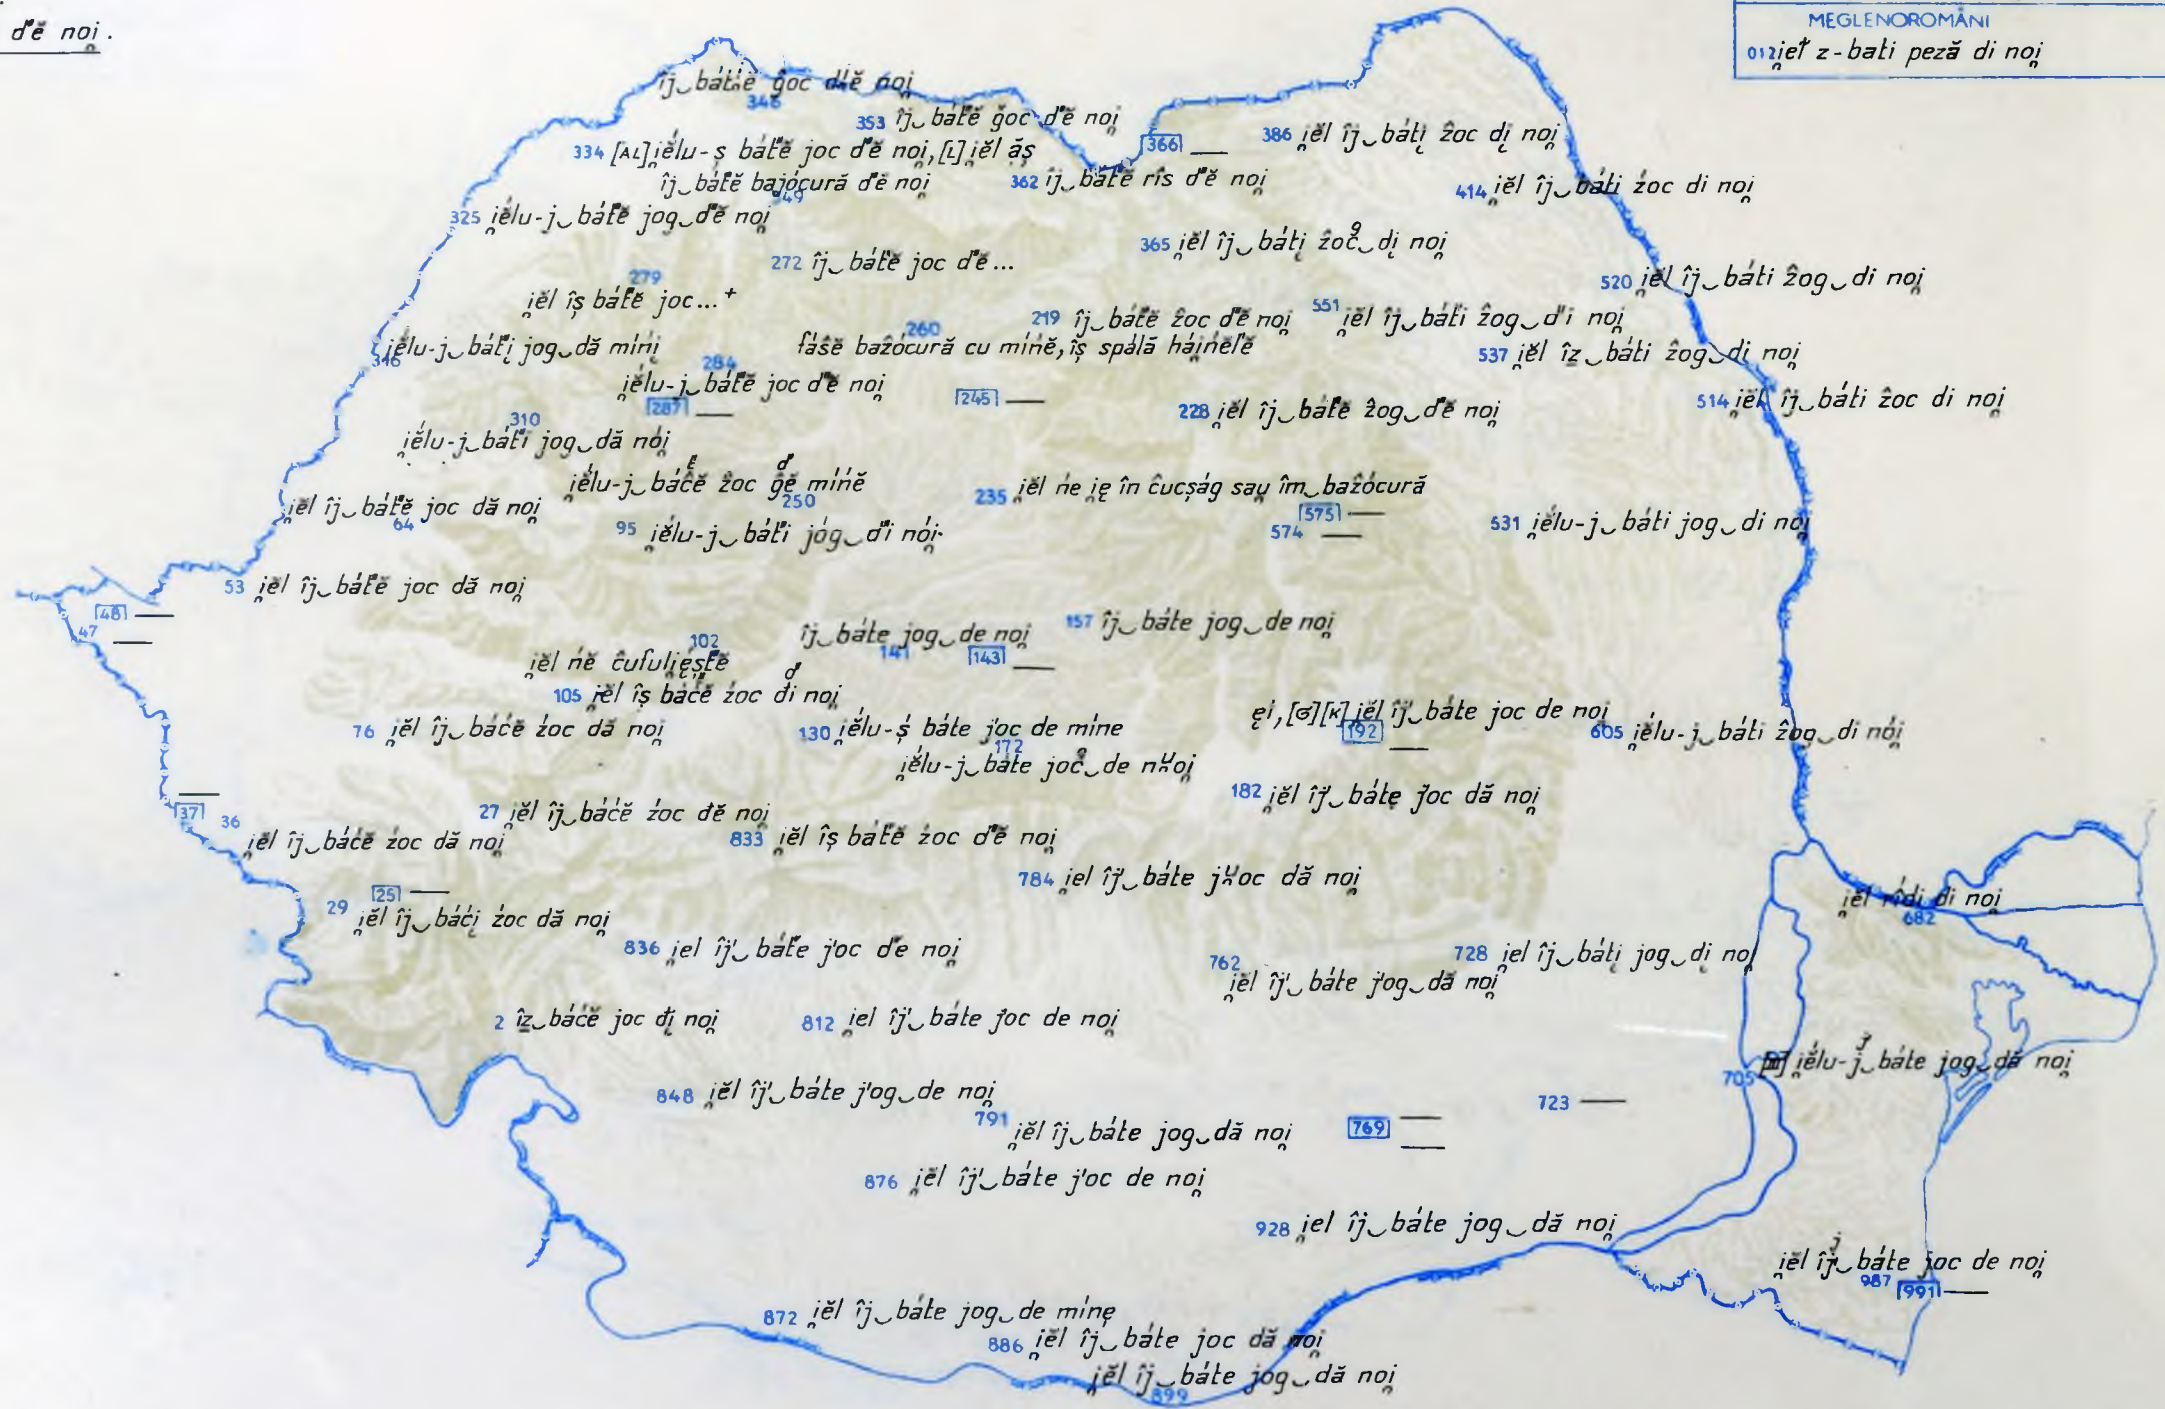 d'ĕ noi̯.
MEGLENOROMÂNI
012 i̯eľ z-bati peză di noi̯
îj‿bát́ĕ ğoc d́ĕ noi̯
346
353 îj‿bát́ĕ ğoc d́ĕ noi̯
366 —
386 i̯ĕl îj‿báti̦ ẑoc di̦ noi̯
334 [AL] i̯ĕ́lu-ș bát́ĕ joc d́ĕ noi̯, [L] i̯ĕl ăș
îj‿bát́ĕ bajócură d́ĕ noi̯
349
362 îj‿bát́ĕ rîs d́ĕ noi̯
414 i̯ĕl îj‿báti źoc di noi̯
325 i̯ĕ́lu-j‿bát́ĕ jog‿d́ĕ noi̯
365 i̯ĕl îj‿báti̦ ẑoc‿di̦ noi̯
272 îj‿bát́ĕ joc d́ĕ...
279
i̯ĕl îș bát́ĕ joc...+
520 i̯ĕl îj‿báti ẑog‿di noi̯
219 îj‿bát́ĕ ẑoc d́ĕ noi̯
551 i̯ĕl îj‿bát́i ẑog‿d́i noi̯
260
i̯ĕ́lu-j‿bát́i̦ jog‿dă míni̯
316
fáŝĕ baẑócură cu míńĕ, îș spálă hái̯ńel'ĕ
537 i̯ĕl îz‿báti ẑog‿di noi̯
284
i̯ĕ́lu-j‿bát́ĕ joc d́ĕ noi̯
287 —
245 —
228 i̯ĕl îj‿bát́ĕ ẑog‿d́ĕ noi̯
514 i̯ĕl îj‿báti ẑoc di noi̯
310
i̯ĕ́lu-j‿bát́i jog‿dă nói̯
i̯ĕ́lu-j‿báĉĕ ẑoc ĝĕ míńĕ
250
235 i̯ĕl ńe i̯ę în ĉucșág sau̯ îm‿baẑócură
575 —
574 —
i̯ĕl îj‿bát́ĕ joc dă noi̯
64
95 i̯ĕ́lu-j‿bát́i jóg‿d́i nói̯
531 i̯ĕ́lu-j‿báti jog‿di noi̯
53 i̯ĕl îj‿bát́ĕ joc dă noi̯
48 —
47 —
îj‿báte jog‿de noi̯
141
143 —
157 îj‿báte jog‿de noi̯
102
i̯ĕl ńĕ ĉufuli̯éșt́ĕ
105 i̯ĕl îș báćĕ źoc đi noi̯
76 i̯ĕl îj‿báćĕ źoc dă noi̯
130 i̯ĕ́lu-ș́ báte j'oc de míne
172
i̯ĕ́lu-j‿báte joc‿de nᵘoi̯
192 —
605 i̯ĕ́lu-j‿báti ẑog‿di nói̯
182 i̯ĕl îj'‿bátę j'oc dă noi̯
37 —
36
i̯ĕl îj‿báćĕ źoc dă noi̯
27 i̯ĕl îj‿báćĕ źoc đĕ noi̯
833 i̯ĕl îș bát́ĕ źoc d́ĕ noi̯
784 i̯el îj'‿báte jᵘoc dă noi̯
25 —
29 i̯ĕl îj‿báći̦ źoc dă noi̯
i̯ĕl rîdi di noi̯
682
836 i̯el îj'‿bát́e j'oc d́e noi̯
728 i̯el îj‿báti̦ jog‿di̦ noi̯
762
i̯ĕl îj'‿báte j'og‿dă noi̯
2 îz‿báćĕ joc đi̦ noi̯
812 i̯el îj'‿báte j'oc de noi̯
i̯ĕ́lu-j‿báte jog‿dă noi̯
705
848 i̯ĕl îj'‿báte j'og‿de noi̯
791 i̯ĕl îj‿báte jog‿dă noi̯
769 —
—
723 —
876 i̯ĕl îj'‿báte j'oc de noi̯
928 i̯el îj‿báte jog‿dă noi̯
i̯ĕl îj‿báte joc de noi̯
987
991 —
872 i̯ĕl îj‿báte jog‿de mínę
886 i̯ĕl îj‿báte joc dă noi̯
i̯ĕl îj‿báte jog‿dă noi̯
899